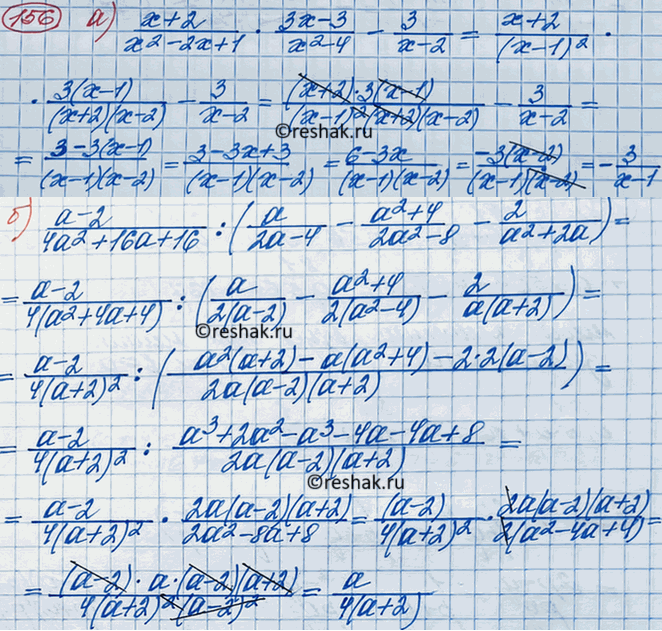 156 а) (x+2)/(x²-2x+1) · (3x-3)/(x²-4) - 3/(x-2) = (x+2)/(x-1)² ·
· 3(x-1)/((x+2)(x-2)) - 3/(x-2) = ((x+2)·3(x-1))/((x-1)²(x+2)(x-2)) - 3/(x-2) =
©reshak.ru
= (3-3(x-1))/((x-1)(x-2)) = (3-3x+3)/((x-1)(x-2)) = (6-3x)/((x-1)(x-2)) = (-3(x-2))/((x-1)(x-2)) = -3/(x-1)
б) (a-2)/(4a²+16a+16) : (a/(2a-4) - (a²+4)/(2a²-8) - 2/(a²+2a)) =
= (a-2)/(4(a²+4a+4)) : (a/(2(a-2)) - (a²+4)/(2(a²-4)) - 2/(a(a+2))) =
©reshak.ru
= (a-2)/(4(a+2)²) : ((a²(a+2)-a(a²+4)-2·2(a-2))/(2a(a-2)(a+2))) =
= (a-2)/(4(a+2)²) : (a³+2a²-a³-4a-4a+8)/(2a(a-2)(a+2)) =
©reshak.ru
= (a-2)/(4(a+2)²) · (2a(a-2)(a+2))/(2a²-8a+8) = (a-2)/(4(a+2)²) · (2a(a-2)(a+2))/(2(a²-4a+4)) =
= ((a-2)·a·(a-2)(a+2))/(4(a+2)²(a-2)²) = a/(4(a+2))